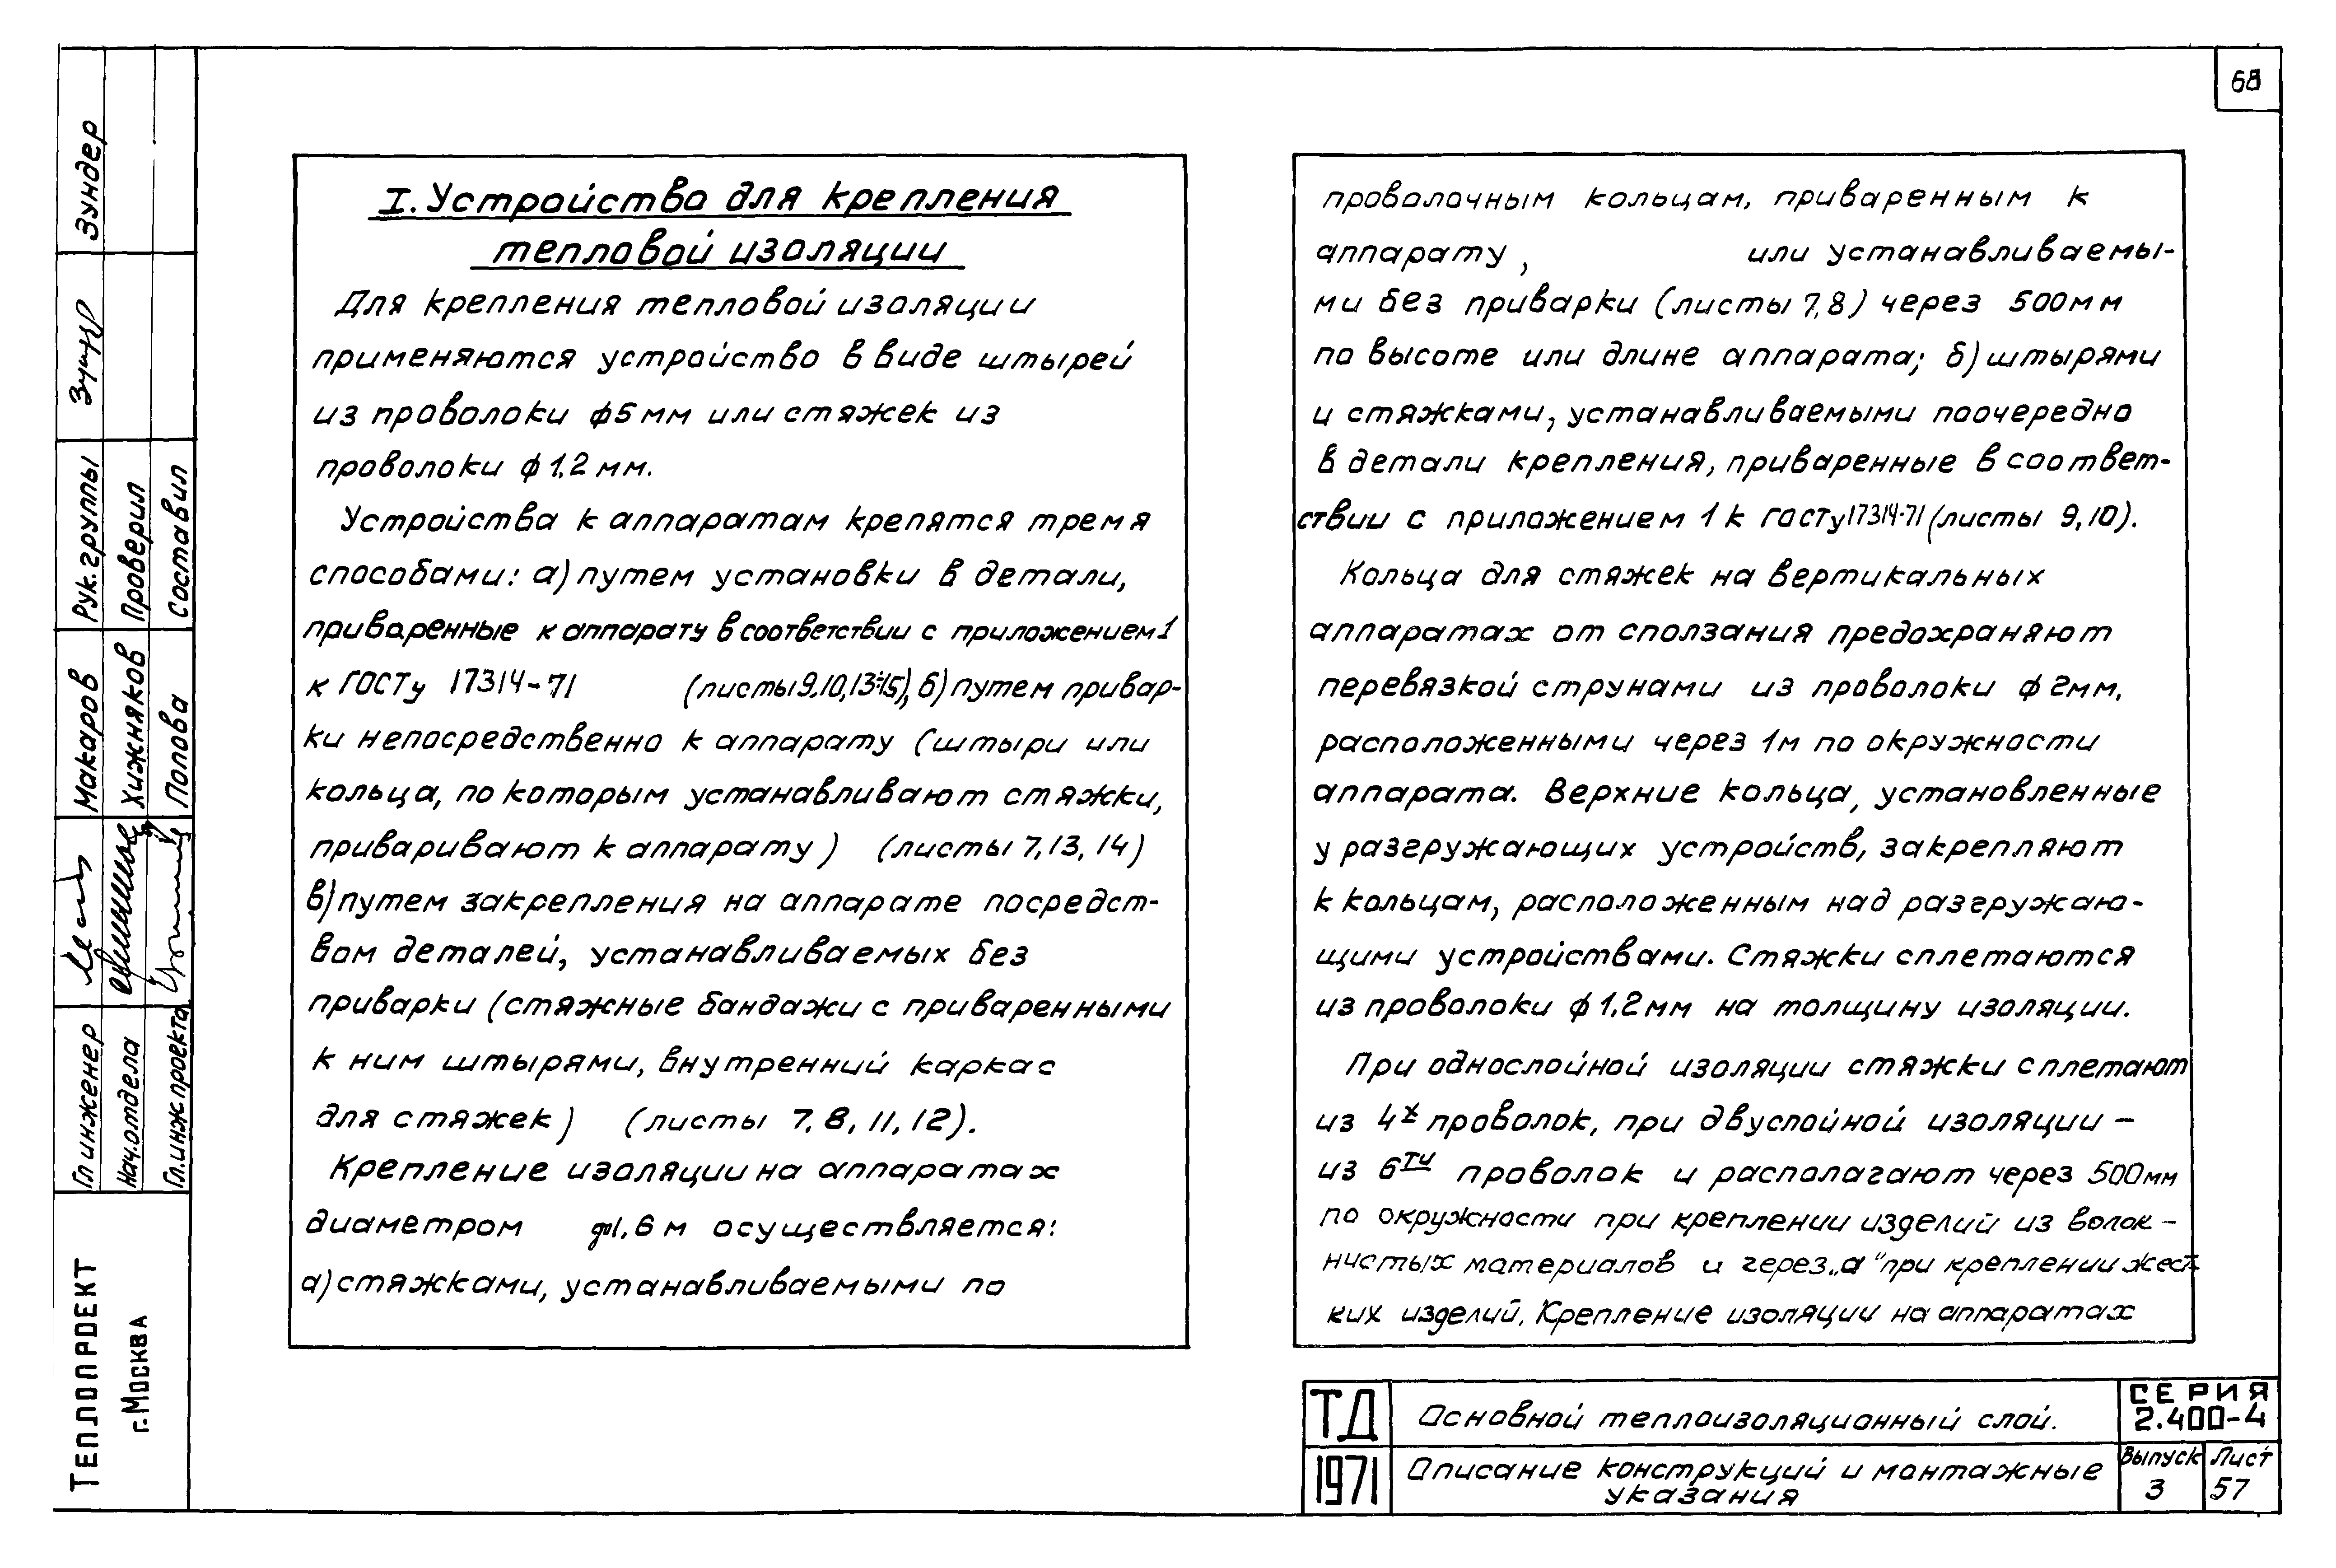 68
I. Устройство для крепления
тепловой изоляции
Для крепления тепловой изоляции
применяются устройство в виде штырей
из проволоки ф5 мм или стяжек из
проволоки ф 1,2 мм.
Устройства к аппаратам крепятся тремя
способами: а) путем установки в детали,
приваренные к аппарату в соответствии с приложением 1
к ГОСТу 17314-71 (листы 9,10,13÷15), б) путем привар-
ки непосредственно к аппарату (штыри или
кольца, по которым устанавливают стяжки,
приваривают к аппарату) (листы 7,13,14)
в) путем закрепления на аппарате посредст-
вом деталей, устанавливаемых без
приварки (стяжные бандажи с приваренными
к ним штырями, внутренний каркас
для стяжек) (листы 7,8,11,12).
Крепление изоляции на аппаратах
диаметром до 1,6 м осуществляется:
а) стяжками, устанавливаемыми по
проволочным кольцам, приваренным к
аппарату, или устанавливаемы-
ми без приварки (листы 7,8) через 500 мм
по высоте или длине аппарата; б) штырями
и стяжками, устанавливаемыми поочередно
в детали крепления, приваренные в соответ-
ствии с приложением 1 к ГОСТу 17314-71 (листы 9,10).
Кольца для стяжек на вертикальных
аппаратах от сползания предохраняют
перевязкой струнами из проволоки ф 2мм,
расположенными через 1м по окружности
аппарата. Верхние кольца, установленные
у разгружающих устройств, закрепляют
к кольцам, расположенным над разгружаю-
щими устройствами. Стяжки сплетаются
из проволоки ф 1,2 мм на толщину изоляции.
При однослойной изоляции стяжки сплетают
из 4х проволок, при двуслойной изоляции –
из 6ти проволок и располагают через 500 мм
по окружности при креплении изделий из волок-
нистых материалов и через „а" при креплении жест-
ких изделий. Крепление изоляции на аппаратах
ТД
1971
Основной теплоизоляционный слой.
Описание конструкций и монтажные
указания
СЕРИЯ
2.400-4
Выпуск
3
Лист
57
Зундер
Рук. группы
Проверил
Составил
Макаров
Хижняков
Попова
Гл инженер
Нач.отдела
Гл.инж.проекта
ТЕПЛОПРОЕКТ
г.Москва